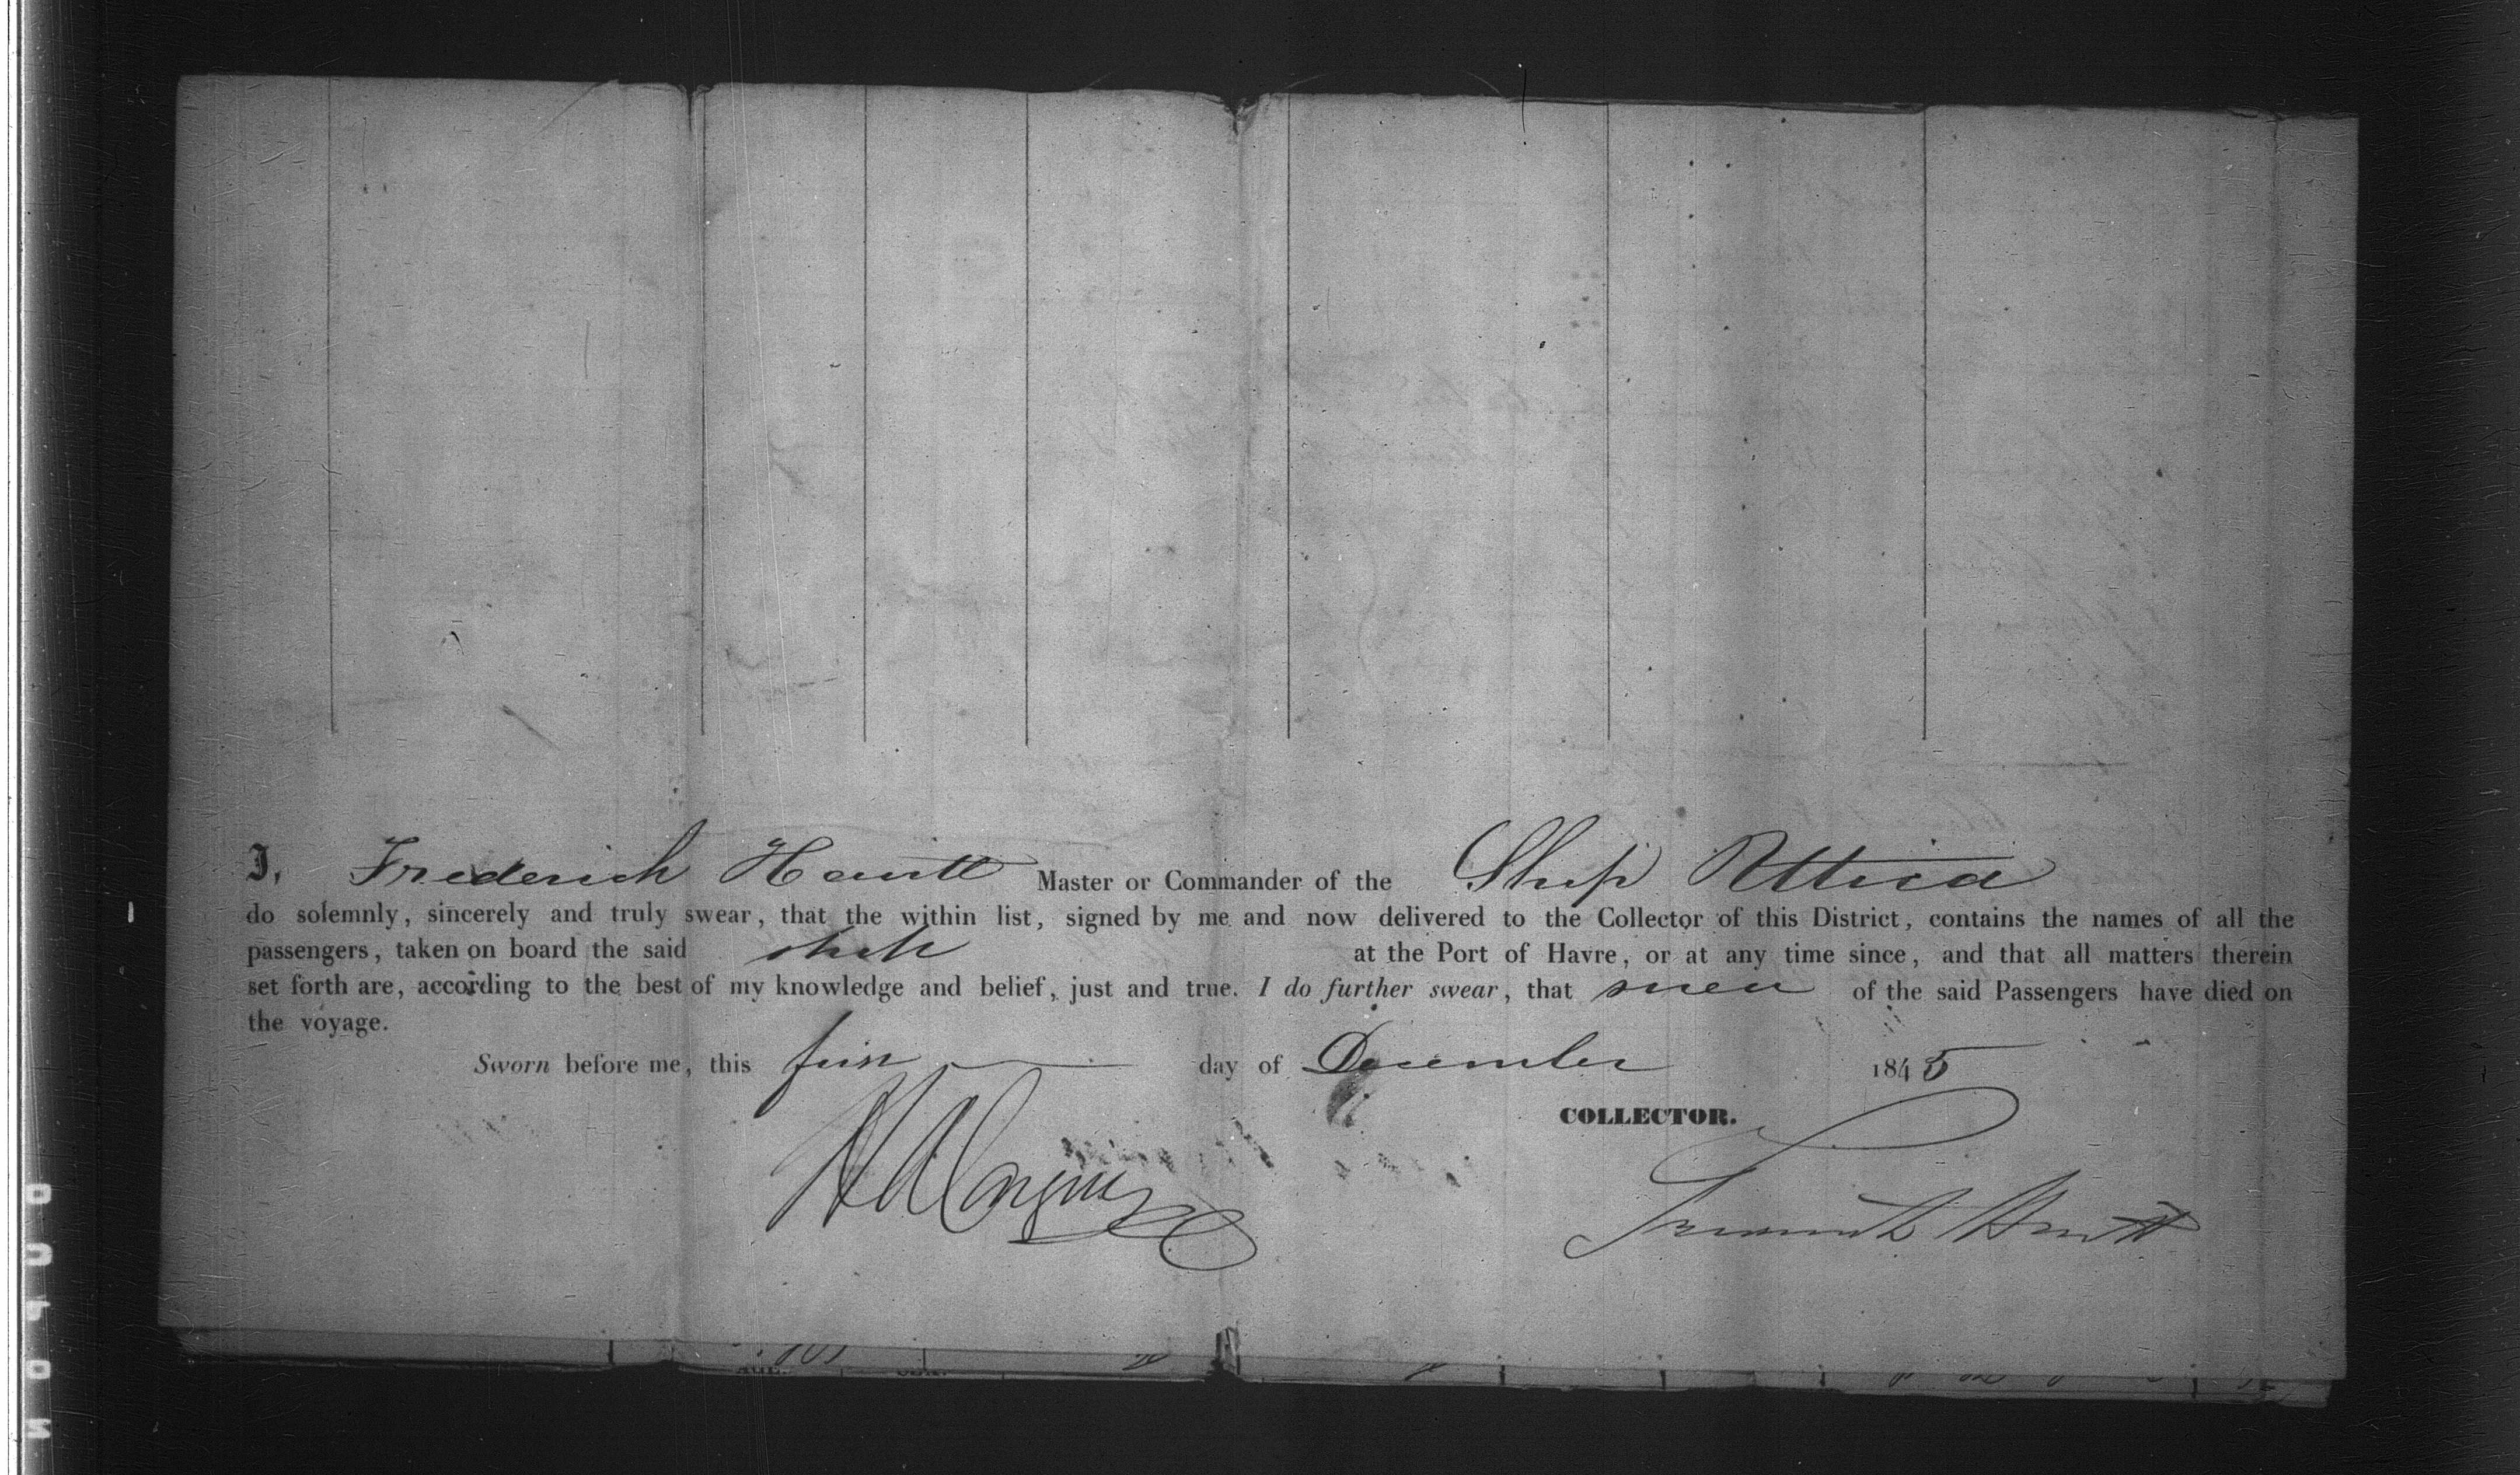 I, Frederick Hewitt Master or Commander of the Ship Utica
do solemnly, sincerely and truly swear, that the within list, signed by me and now delivered to the Collector of this District, contains the names of all the
passengers, taken on board the said ship at the Port of Havre, or at any time since, and that all matters therein
set forth are, according to the best of my knowledge and belief, just and true. I do further swear, that of the said Passengers have died on
the voyage.
Sworn before me, this day of December 1845
COLLECTOR.